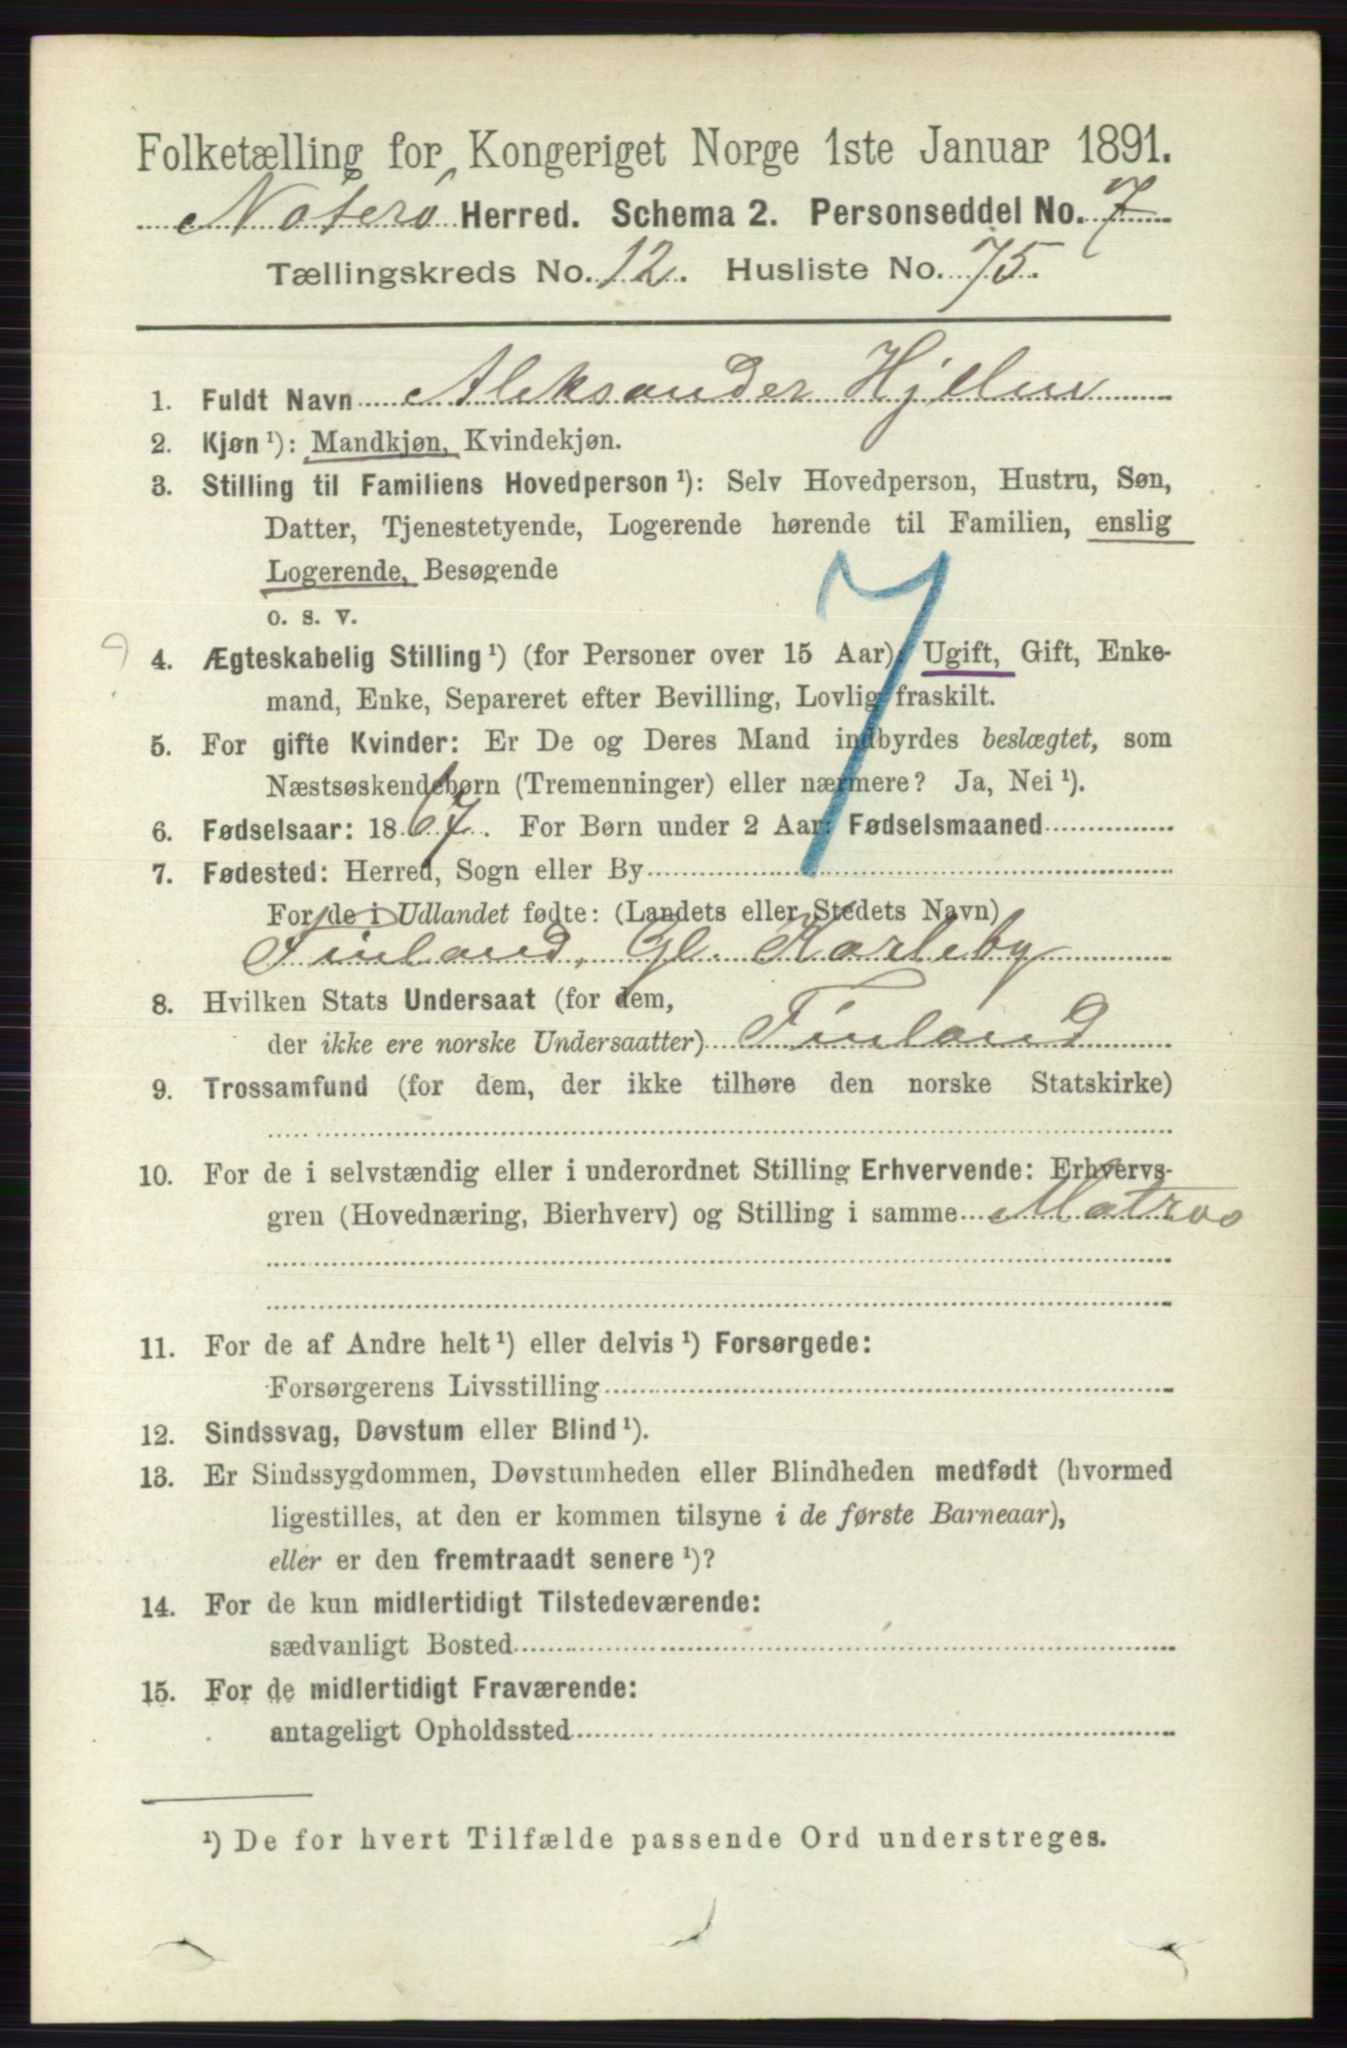 Folketælling for Kongeriget Norge 1ste Januar 1891.
Nøterø Herred. Schema 2. Personseddel No. 7
Tællingskreds No. 12. Husliste No. 75.
1. Fuldt Navn Aleksander Hjelm
2. Kjøn ¹): Mandkjøn, Kvindekjøn.
3. Stilling til Familiens Hovedperson ¹): Selv Hovedperson, Hustru, Søn,
Datter, Tjenestetyende, Logerende hørende til Familien, enslig
Logerende, Besøgende
o. s. v.
7
4. Ægteskabelig Stilling ¹) (for Personer over 15 Aar): Ugift, Gift, Enke-
mand, Enke, Separeret efter Bevilling, Lovlig fraskilt.
5. For gifte Kvinder: Er De og Deres Mand indbyrdes beslægtet, som
Næstsøskendebørn (Tremenninger) eller nærmere? Ja, Nei ¹).
6. Fødselsaar: 1867. For Børn under 2 Aar: Fødselsmaaned
7. Fødested: Herred, Sogn eller By
For de i Udlandet fødte: (Landets eller Stedets Navn)
Finland, Gl. Karleby
8. Hvilken Stats Undersaat (for dem,
der ikke ere norske Undersaatter) Finland
9. Trossamfund (for dem, der ikke tilhøre den norske Statskirke)
10. For de i selvstændig eller i underordnet Stilling Erhvervende: Erhvervs-
gren (Hovednæring, Bierhverv) og Stilling i samme Matros
11. For de af Andre helt ¹) eller delvis ¹) Forsørgede:
Forsørgerens Livsstilling
12. Sindssvag, Døvstum eller Blind ¹).
13. Er Sindssygdommen, Døvstumheden eller Blindheden medfødt (hvormed
ligestilles, at den er kommen tilsyne i de første Barneaar),
eller er den fremtraadt senere ¹)?
14. For de kun midlertidigt Tilstedeværende:
sædvanligt Bosted
15. For de midlertidigt Fraværende:
antageligt Opholdssted
¹) De for hvert Tilfælde passende Ord understreges.